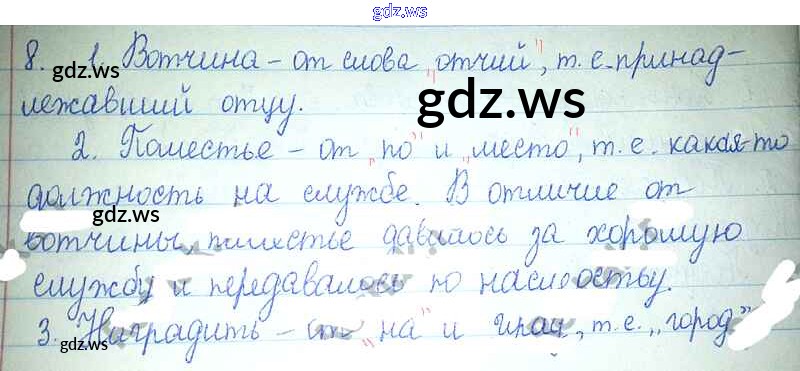 gdz.ws
8. 1. Вотчина – от слова „отчий", т. е. принад-
gdz.ws
лежавший отцу.
gdz.ws
2. Поместье – от „по" и „место", т. е. какая-то
должность на службе. В отличие от
gdz.ws
вотчины, поместье давалось за хорошую
службу и передавалось по наследству.
gdz.ws
3. Наградить – от „на" и „град", т. е. „город"
gdz.ws